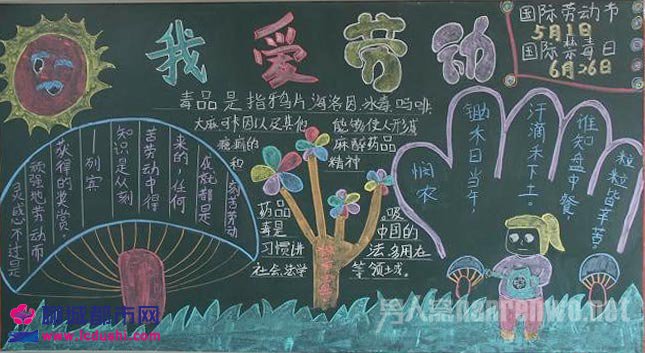 我爱劳动
国际劳动节
5月1日
国际禁毒日
6月26日
毒品是指鸦片海洛因、冰毒吗啡
大麻可卡因以及其他 能够使人形成
瘾癖的 麻醉药品
和 精神
药品 。吸
毒是 中国的
习惯讲 法,多用在
社会、法学 等领域。
灵感不过是
顽强地劳动而
获得的奖赏
—列宾
知识是从刻
苦劳动中得
来的,任何
成就都是
刻苦劳动
悯农
锄木日当午,
汗滴禾下土。
谁知盘中餐,
粒粒皆辛苦。
聊城都市网
www.lcdushi.com
男人窝nanrenwo.net